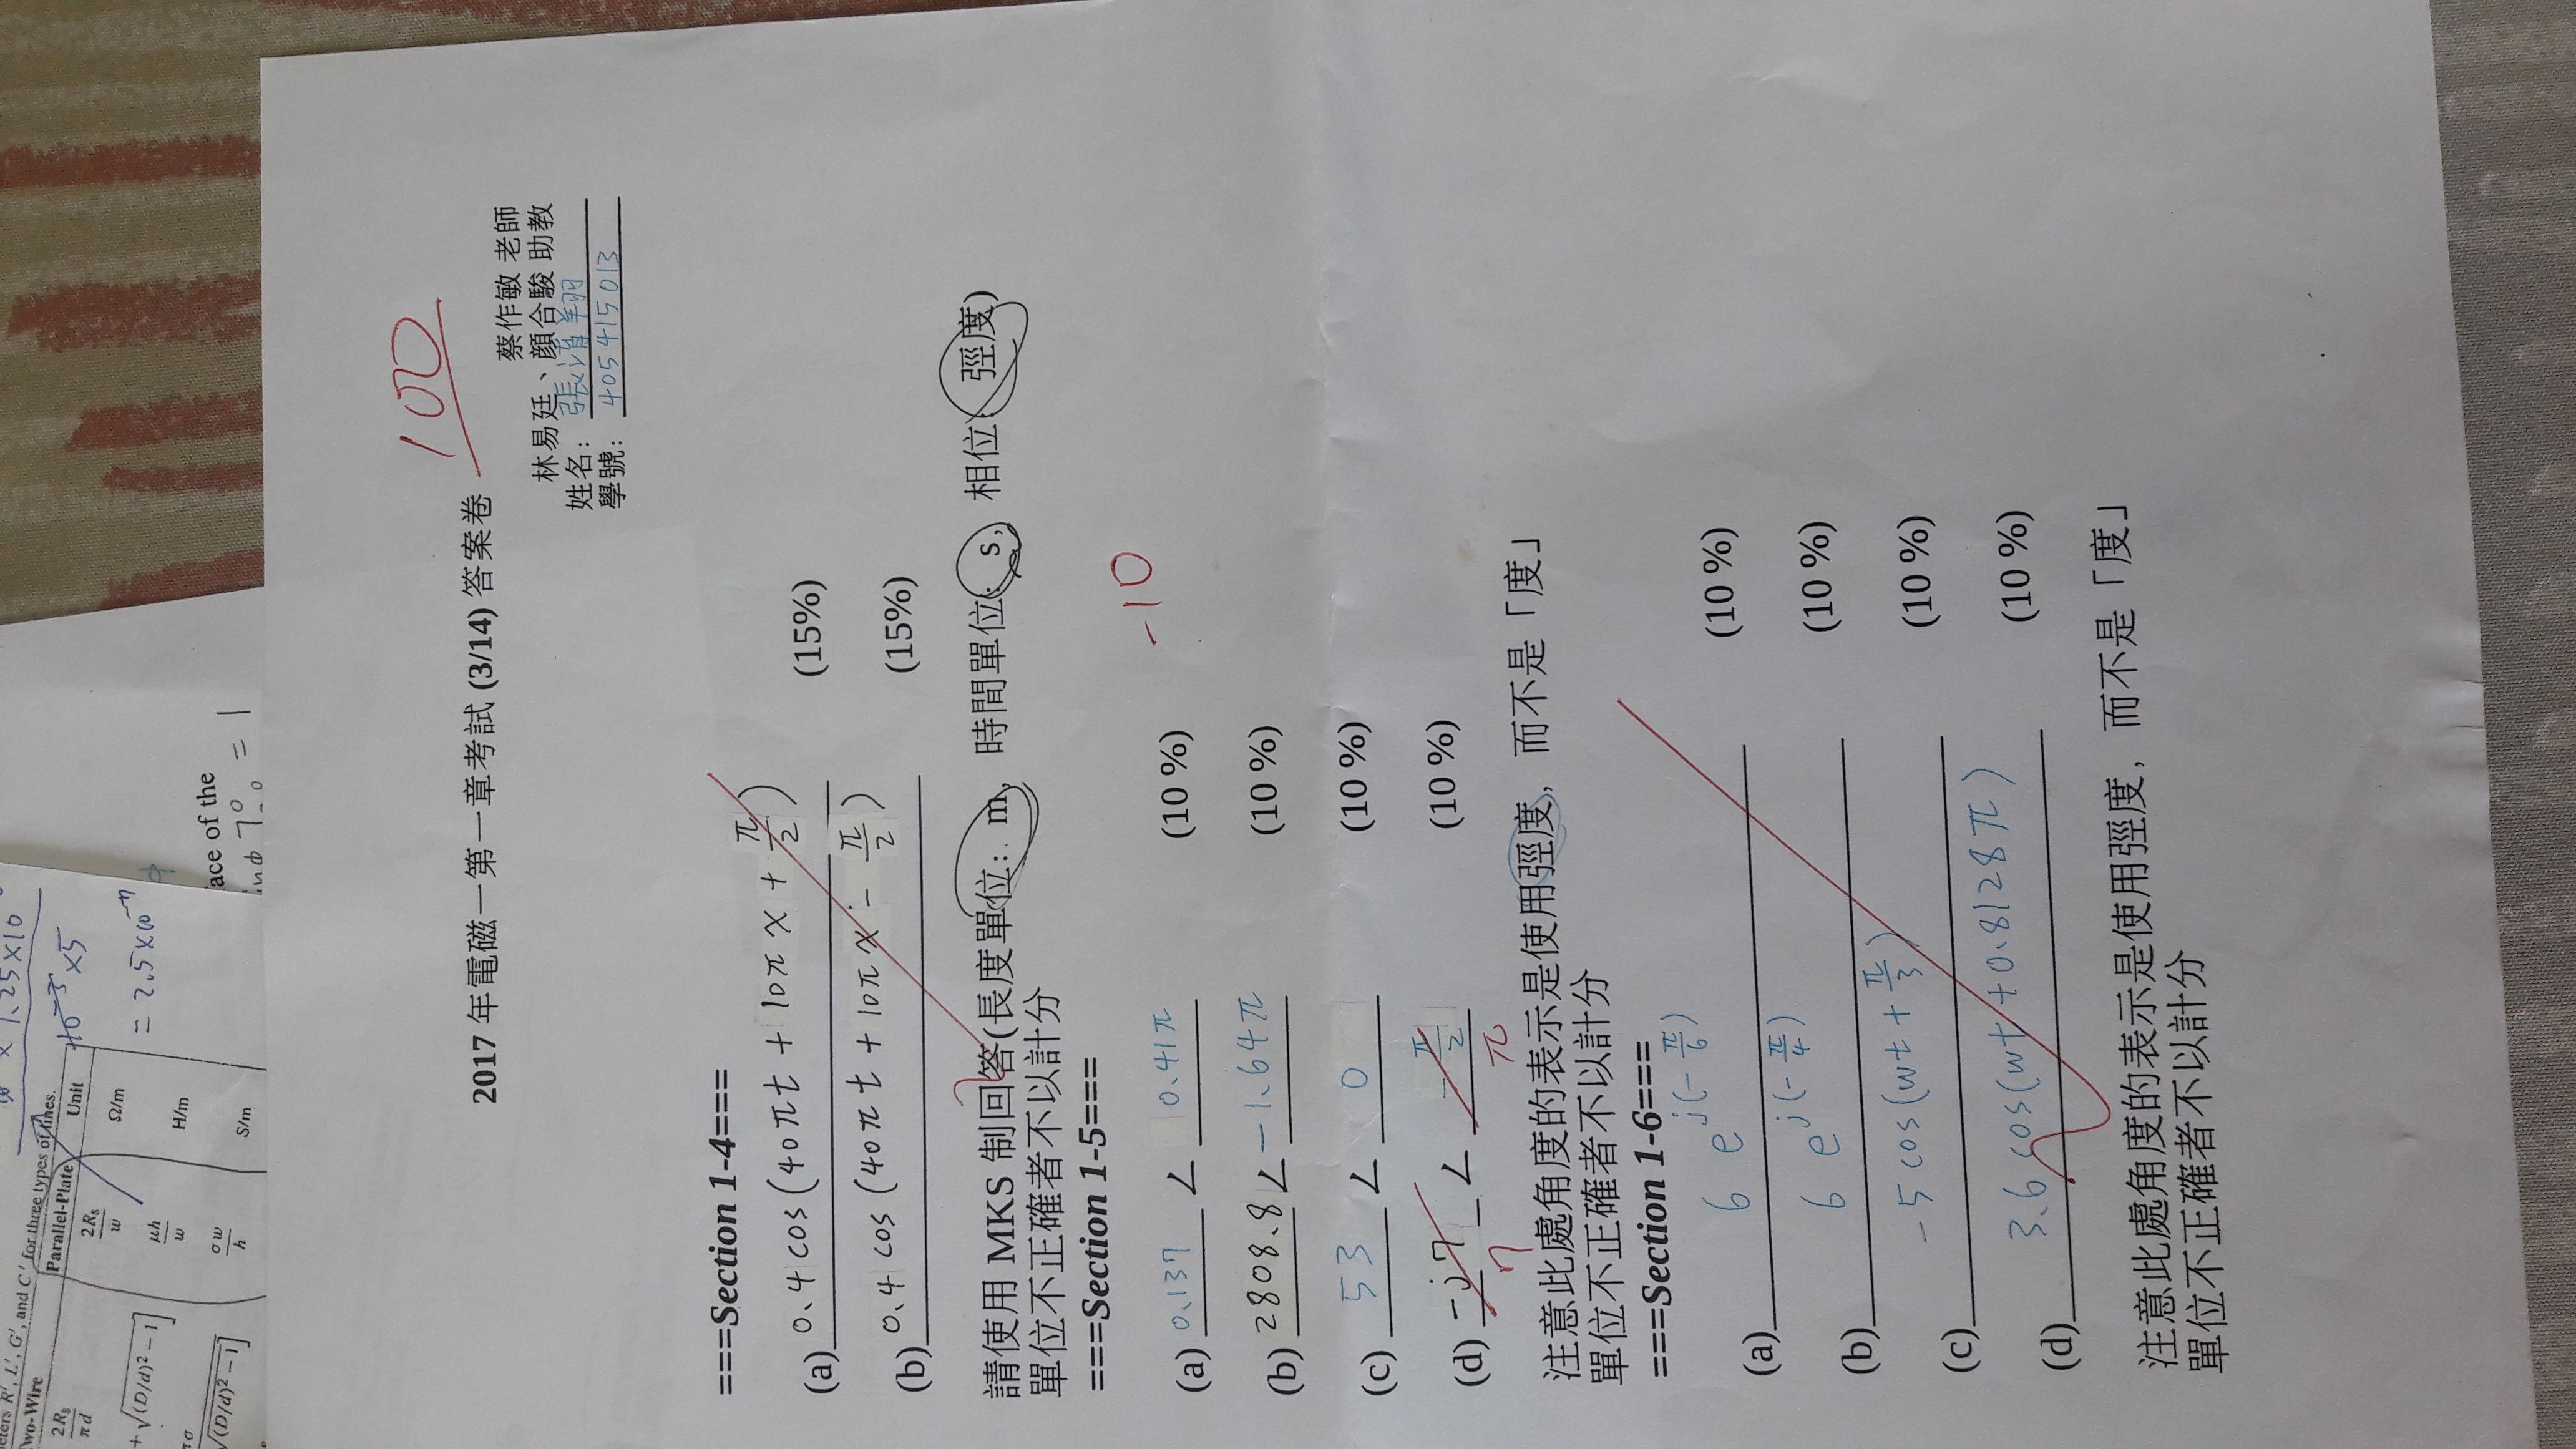 R', L', G', and C' for three types of lines.
Two-Wire Parallel-Plate Unit
2Rs/πd 2Rs/w Ω/m
+ √(D/d)² − 1] μh/w H/m
πσ
√(D/d)² − 1] σw/h S/m
× 1.25×10
10⁻³ ×5
= 2.5×10
ace of the
= 1
100
2017 年電磁一第一章考試 (3/14) 答案卷
蔡作敏 老師
林易廷、顏合駿 助教
姓名: 張清翔
學號: 405415013
===Section 1-4===
(a) 0.4 cos(40πt + 10πx + π/2) (15%)
(b) 0.4 cos(40πt + 10πx − π/2) (15%)
請使用 MKS 制回答(長度單位: m, 時間單位: s, 相位: 弳度)
單位不正確者不以計分
===Section 1-5===
-10
(a) 0.137 ∠ 0.41π (10 %)
(b) 2808.8 ∠ −1.64π (10 %)
(c) 53 ∠ 0 (10 %)
(d) −j7 ∠ −π/2 (10 %)
7 π
注意此處角度的表示是使用弳度, 而不是「度」
單位不正確者不以計分
===Section 1-6===
(a) 6 e^j(−π/6) (10 %)
(b) 6 e^j(−π/4) (10 %)
(c) −5 cos(wt + π/3) (10 %)
(d) 3.6 cos(wt +0.8128π) (10 %)
注意此處角度的表示是使用弳度, 而不是「度」
單位不正確者不以計分